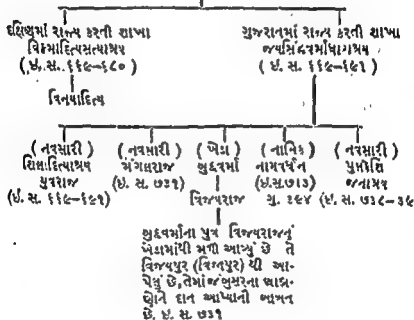 દક્ષિણમાં રાજ્ય કરતી શાખા
વિક્રમાદિત્યસત્યાશ્રય
( ઇ. સ. ૬૬૯–૬૮૦ )
વિનયાદિત્ય
ગુજરાતમાં રાજ્ય કરતી શાખા
જયસિંહવર્માધારાશ્રય
( ઇ. સ. ૬૬૯–૬૯૧ )
( નવસારી )
શિલાદિત્યાશ્રય
યુવરાજ
(ઇ. સ. ૬૬૯–૬૯૧)
( નવસારી )
મંગલરાજ
(ઇ. સ. ૭૩૧)
( ખેડા )
બુદ્ધવર્મા
વિજયરાજ
( નાસિક )
નાગવર્ધન
(ઇ.સ.૭૧૩)
ગુ. ૩૯૪
( નવસારી )
પુલકેશિ
જનાશ્રય
(ઇ. સ. ૭૩૮–૩૯
બુદ્ધવર્માના પુત્ર વિજયરાજનું
ખેડામાંથી મળી આવ્યું છે તે
વિજયપુર (વિજાપુર) થી આ-
પેલું છે, તેમાં જંબુસરના બ્રાહ્મ-
ણોને દાન આપ્યાની બાબત
છે. ઇ. સ. ૭૩૧